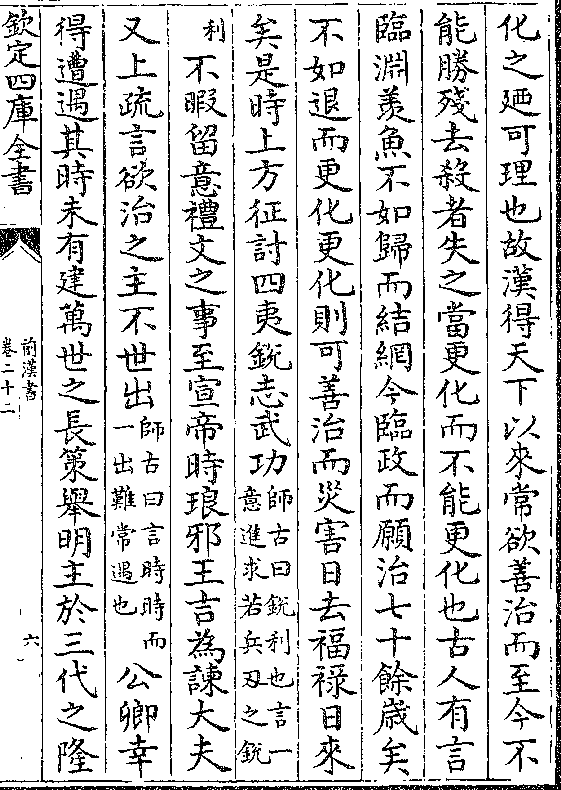 化之廼可理也故漢得天下以來常欲善治而至今不
能勝殘去殺者失之當更化而不能更化也古人有言
臨淵羨魚不如歸而結網今臨政而願治七十餘歲矣
不如退而更化更化則可善治而災害日去福祿日來
矣是時上方征討四夷銳志武功師古曰銳利也言一意進求若兵刃之銳
利不暇留意禮文之事至宣帝時琅邪王吉為諫大夫
又上疏言欲治之主不世出師古曰言時時而一出難常遇也公卿幸
得遭遇其時未有建萬世之長策舉明主於三代之隆
欽定四庫全書
前漢書
卷二十二
六